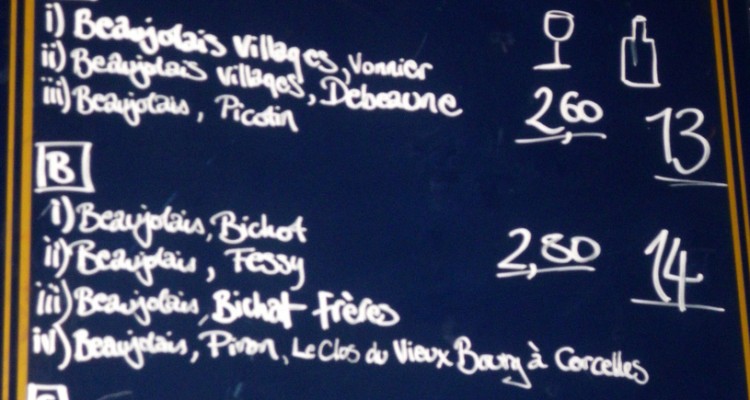 i) Beaujolais Villages, Vonnier
ii) Beaujolais Villages, Debeaune
iii) Beaujolais, Picotin
2,60 13
B
i) Beaujolais, Bichot
ii) Beaujolais, Fessy
2,80 14
iii) Beaujolais, Bichat frères
iv) Beaujolais, Piron, Le Clos du Vieux Bourg à Corcelles